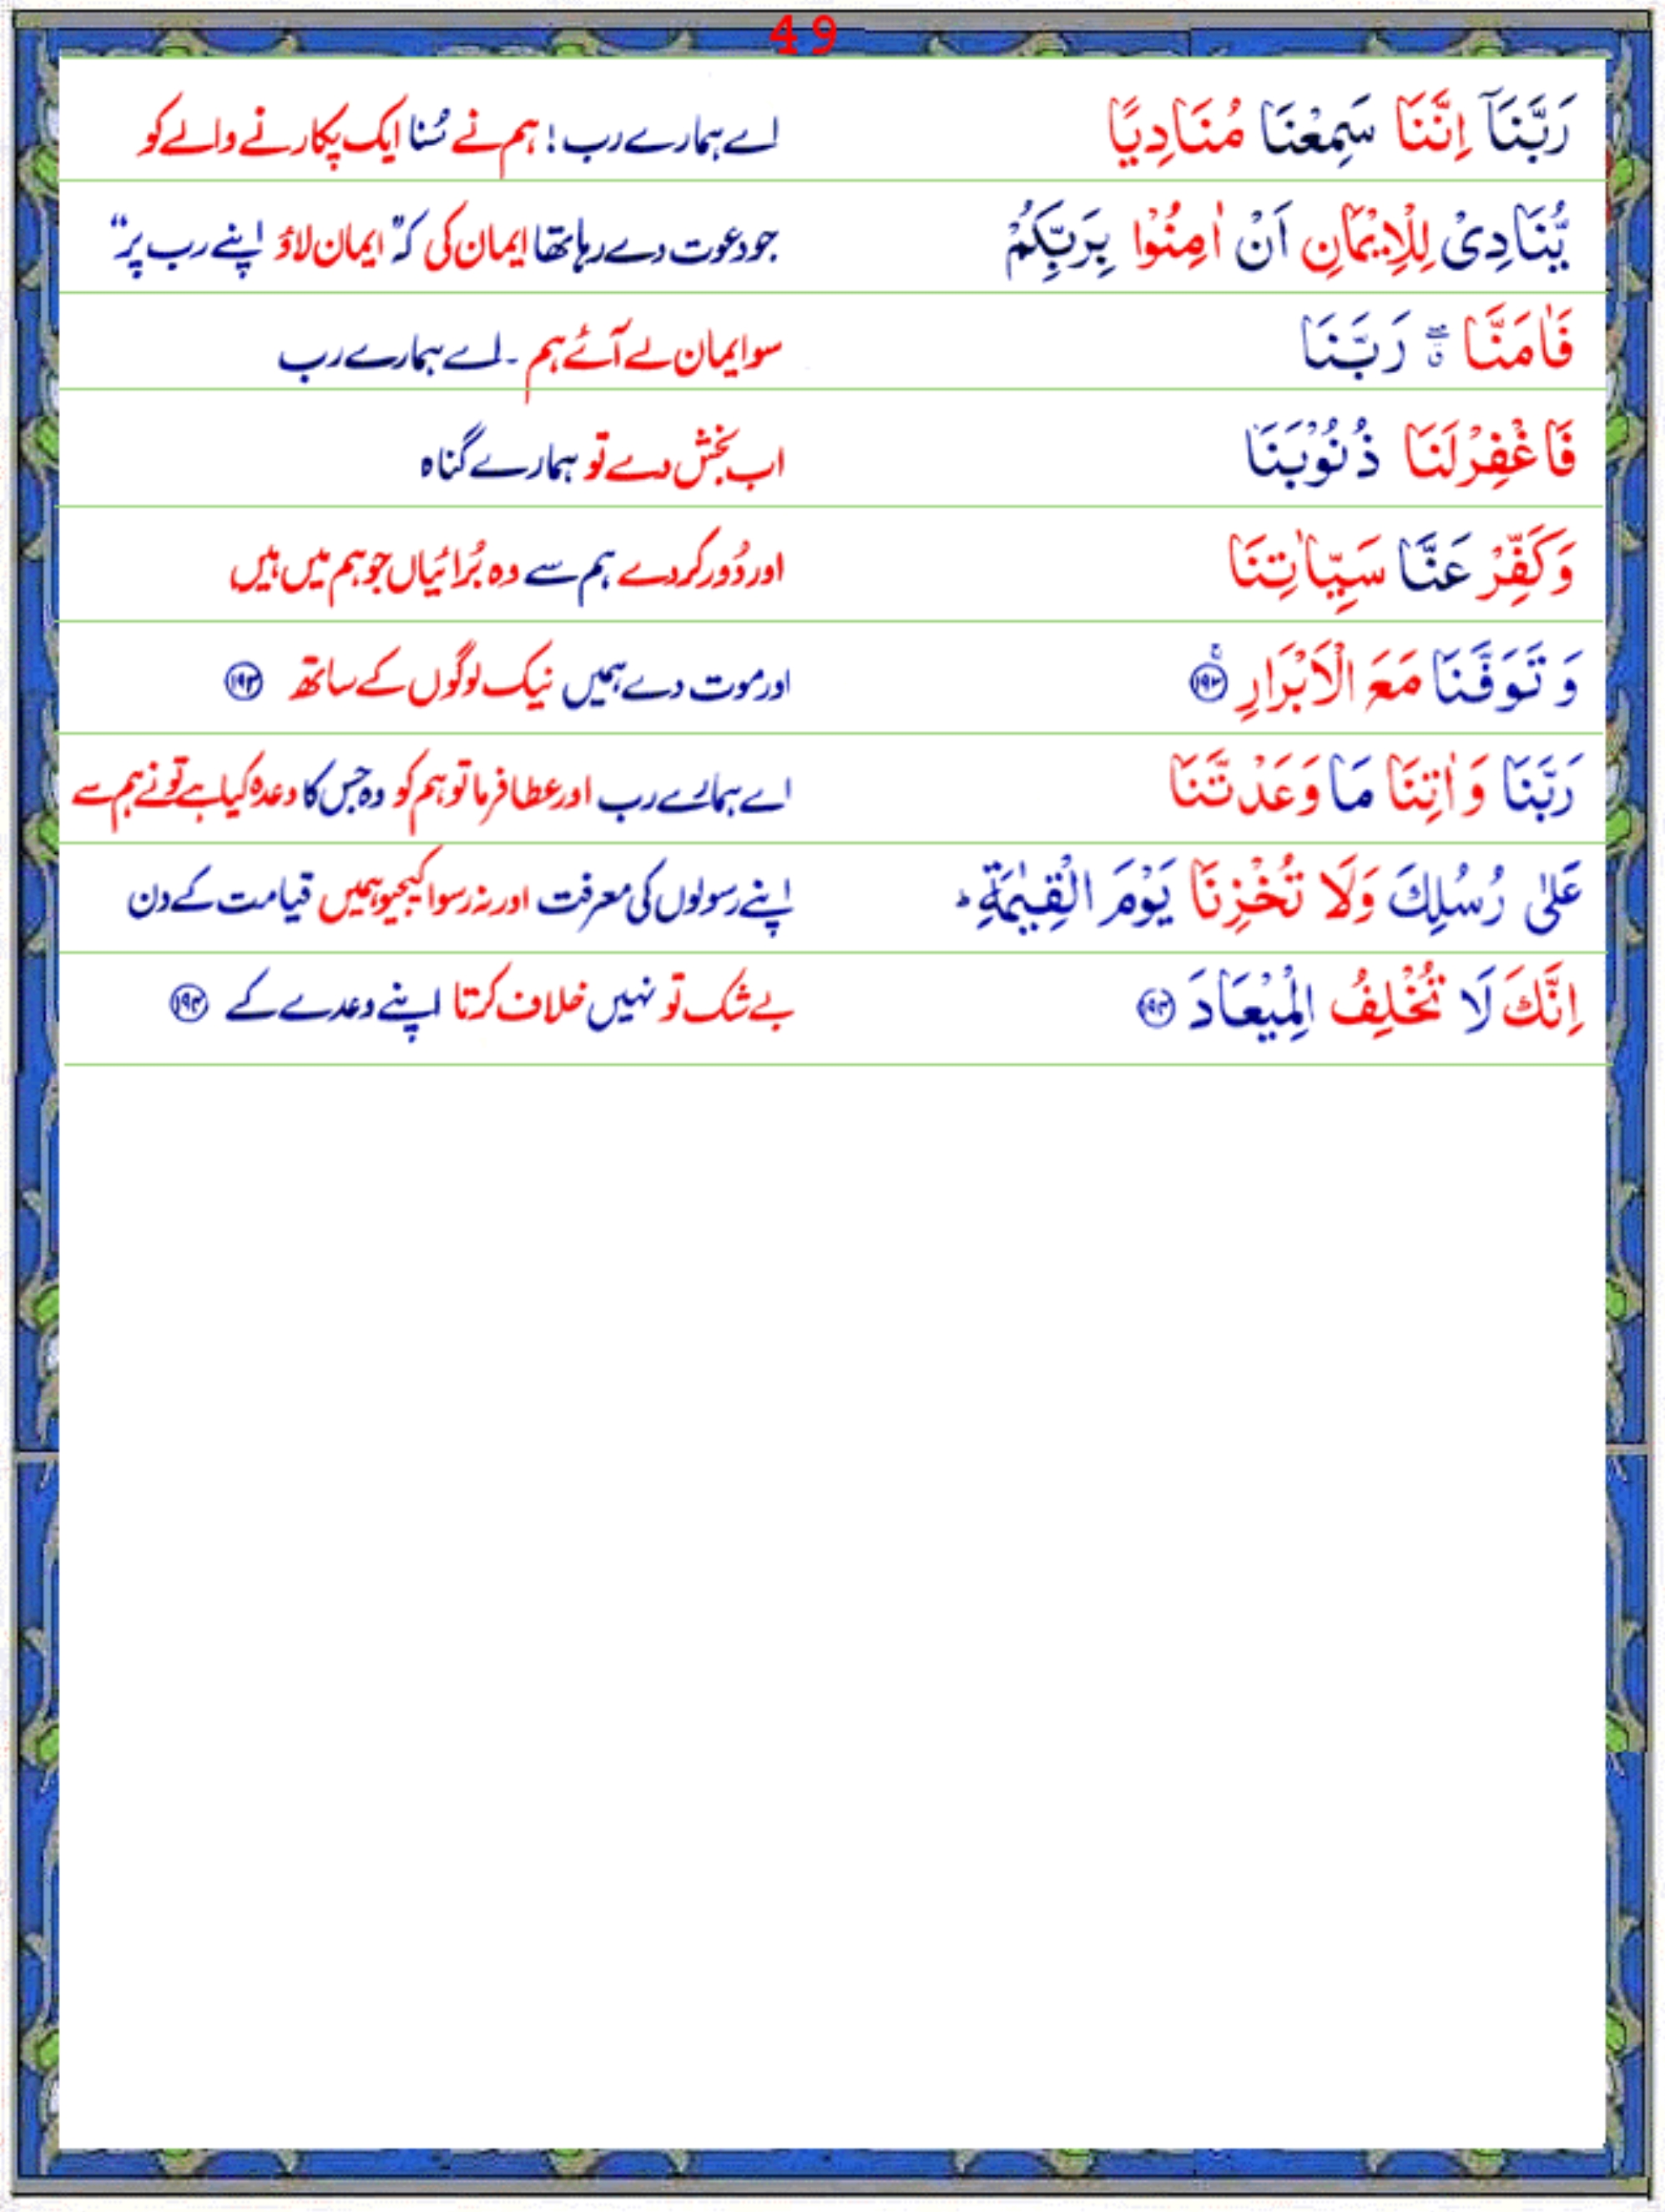 49
رَبَّنَآ اِنَّنَا سَمِعْنَا مُنَادِيًا اے ہمارے رب! ہم نے سُنا ایک پکارنے والے کو
يُّنَادِىْ لِلْاِيْمَانِ اَنْ اٰمِنُوْا بِرَبِّكُمْ جو دعوت دے رہا تھا ایمان کی کہ ”ایمان لاؤ اپنے رب پر“
فَاٰمَنَّا ۖۗ رَبَّنَا سو ایمان لے آئے ہم ۔ اے ہمارے رب
فَاغْفِرْلَنَا ذُنُوْبَنَا اب بخش دے تو ہمارے گناہ
وَكَفِّرْ عَنَّا سَيِّاٰتِنَا اور دُور کر دے ہم سے وہ بُرائیاں جو ہم میں ہیں
وَ تَوَفَّنَا مَعَ الْاَبْرَارِ ۚ ﴿۱۹۳﴾ اور موت دے ہمیں نیک لوگوں کے ساتھ ﴿۱۹۳﴾
رَبَّنَا وَ اٰتِنَا مَا وَعَدْتَّنَا اے ہمارے رب اور عطا فرما تو ہم کو وہ جس کا وعدہ کیا ہے تو نے ہم سے
عَلٰى رُسُلِكَ وَلَا تُخْزِنَا يَوْمَ الْقِيٰمَةِ ؕ اپنے رسولوں کی معرفت اور نہ رسوا کیجیو ہمیں قیامت کے دن
اِنَّكَ لَا تُخْلِفُ الْمِيْعَادَ ﴿۱۹۴﴾ بے شک تو نہیں خلاف کرتا اپنے وعدے کے ﴿۱۹۴﴾